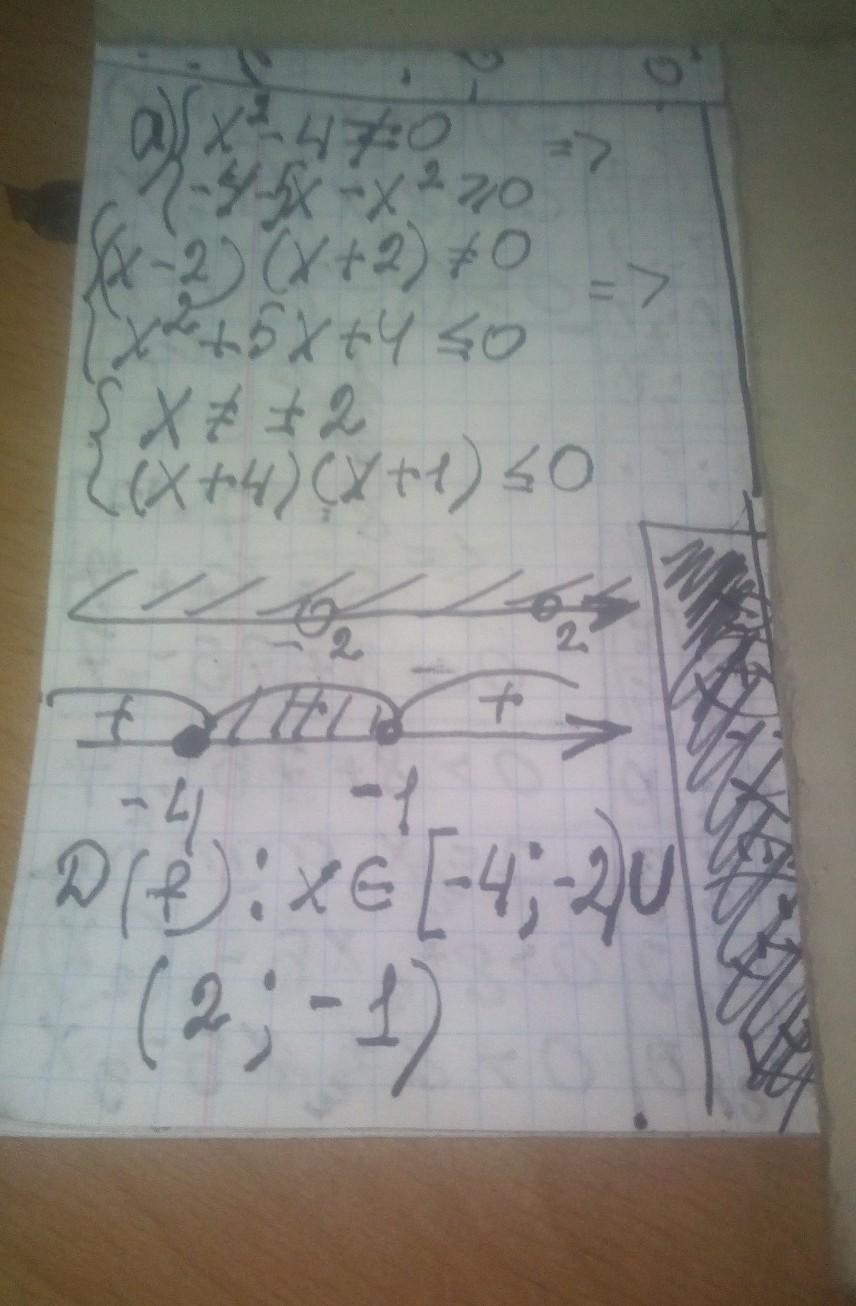 а) { x² - 4 ≠ 0 =>
{ -4-5x - x² ≥ 0
{ (x-2) (x+2) ≠ 0 =>
{ x² + 5x + 4 ≤ 0
{ x ≠ ±2
{ (x+4) (x+1) ≤ 0
-2 2
+ + - +
-4 -1
D(f): x ∈ [-4; -2) ∪
(2; -1)